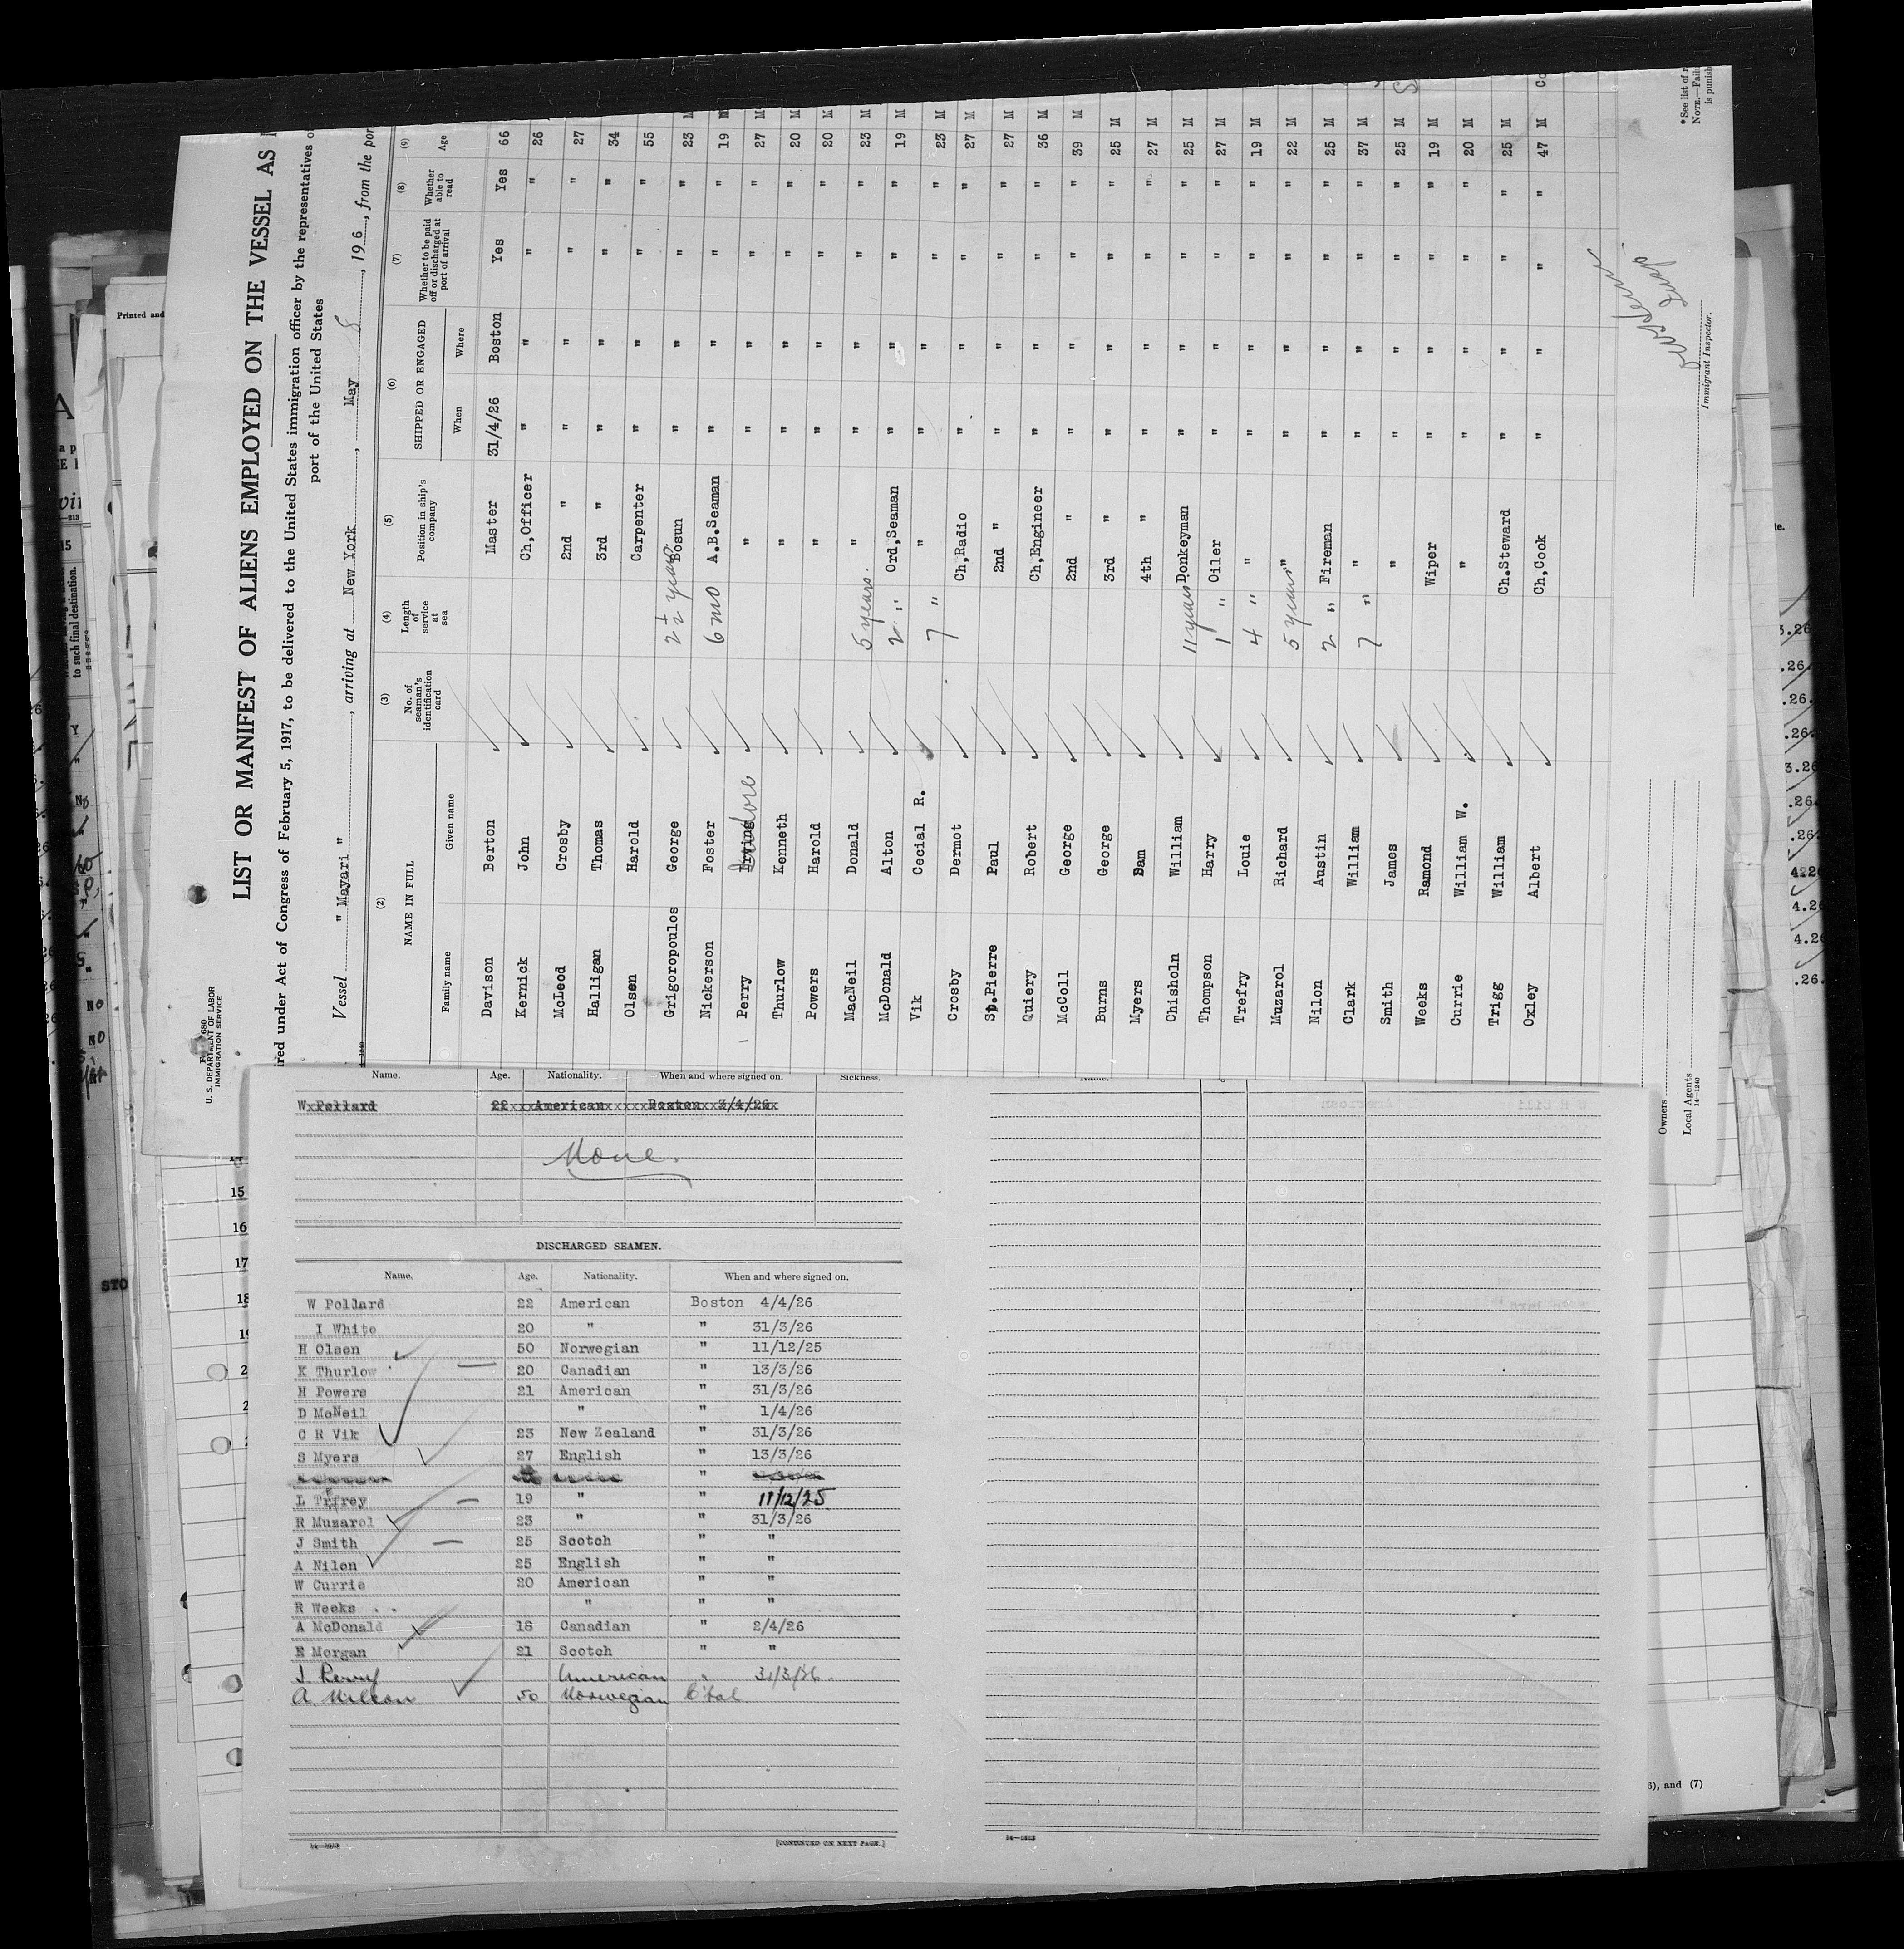 U. S. DEPARTMENT OF LABOR
IMMIGRATION SERVICE
LIST OR MANIFEST OF ALIENS EMPLOYED ON THE VESSEL AS
red under Act of Congress of February 5, 1917, to be delivered to the United States immigration officer by the representatives o
port of the United States
Vessel " Mayari ", arriving at New York, May 8, 196, from the por
(2) (3) (4) (5) (6) (7) (8) (9)
NAME IN FULL No. of seaman's identification card Length of service at sea Position in ship's company SHIPPED OR ENGAGED Whether to be paid off or discharged at port of arrival Whether able to read Age
Family name Given name When Where
Davison Berton Master 31/4/26 Boston Yes Yes 66
Kernick John Ch,Officer " " " " 26
McLeod Crosby 2nd " " " " " 27
Halligan Thomas 3rd " " " " " 34
Olsen Harold Carpenter " " " " 55
Grigoropoulos George 2 1/2 years Bosun " " " " 23 M
Nickerson Foster 6 mo A.B.Seaman " " " " 19 M
Perry Irving Isadore " " " " " 27 M
Thurlow Kenneth " " " " " 20 M
Powers Harold " " " " " 20 M
MacNeil Donald 5 years. " " " " " 23 M
McDonald Alton 2 " Ord,Seaman " " " " 19 M
Vik Cecial R. 7 " " " " " " 23 M
Crosby Dermot Ch,Radio " " " " 27 M
St.Pierre Paul 2nd " " " " " 27 M
Quiery Robert Ch,Engineer " " " " 36 M
McColl George 2nd " " " " " 39 M
Burns George 3rd " " " " " 25 M
Myers Sam 4th " " " " " 27 M
Chisholn William 11 years Donkeyman " " " " 25 M
Thompson Harry 1 " Oiler " " " " 27 M
Trefry Louie 4 " " " " " " 19 M
Muzarol Richard 5 years " " " " " 22 M
Nilon Austin 2 " Fireman " " " " 25 M
Clark William 7 " " " " " " 37 M
Smith James " " " " " 25 M
Weeks Ramond Wiper " " " " 19 M
Currie William W. " " " " " 20 M
Trigg William Ch.Steward " " " " 25 M
Oxley Albert Ch,Cook " " " " 47 M Co
Immigrant Inspector.
*See list of r
NOTE.—Fail
is punish
Owners
Local Agents
14—1240
Printed and
to such final destination.
Name. Age. Nationality. When and where signed on. Sickness.
W Pollard 22 American Boston 3/4/26
None.
DISCHARGED SEAMEN.
Name. Age. Nationality. When and where signed on.
W Pollard 22 American Boston 4/4/26
I White 20 " " 31/3/26
H Olsen 50 Norwegian " 11/12/25
K Thurlow 20 Canadian " 13/3/26
H Powers 21 American " 31/3/26
D McNeil " " 1/4/26
C R Vik 23 New Zealand " 31/3/26
S Myers 27 English " 13/3/26
"
L Trfrey 19 " " 11/12/25
R Muzarol 23 " " 31/3/26
J Smith 25 Scotch " "
A Nilon 25 English " "
W Currie 20 American " "
R Weeks " " "
A McDonald 18 Canadian " 2/4/26
E Morgan 21 Scotch " "
J. Perry American " 31/3/26.
A. Nilsen 50 Norwegian C'bal
14—1213
[CONTINUED ON NEXT PAGE.]
14—1213
15
16
17
18
STO
6), and (7)